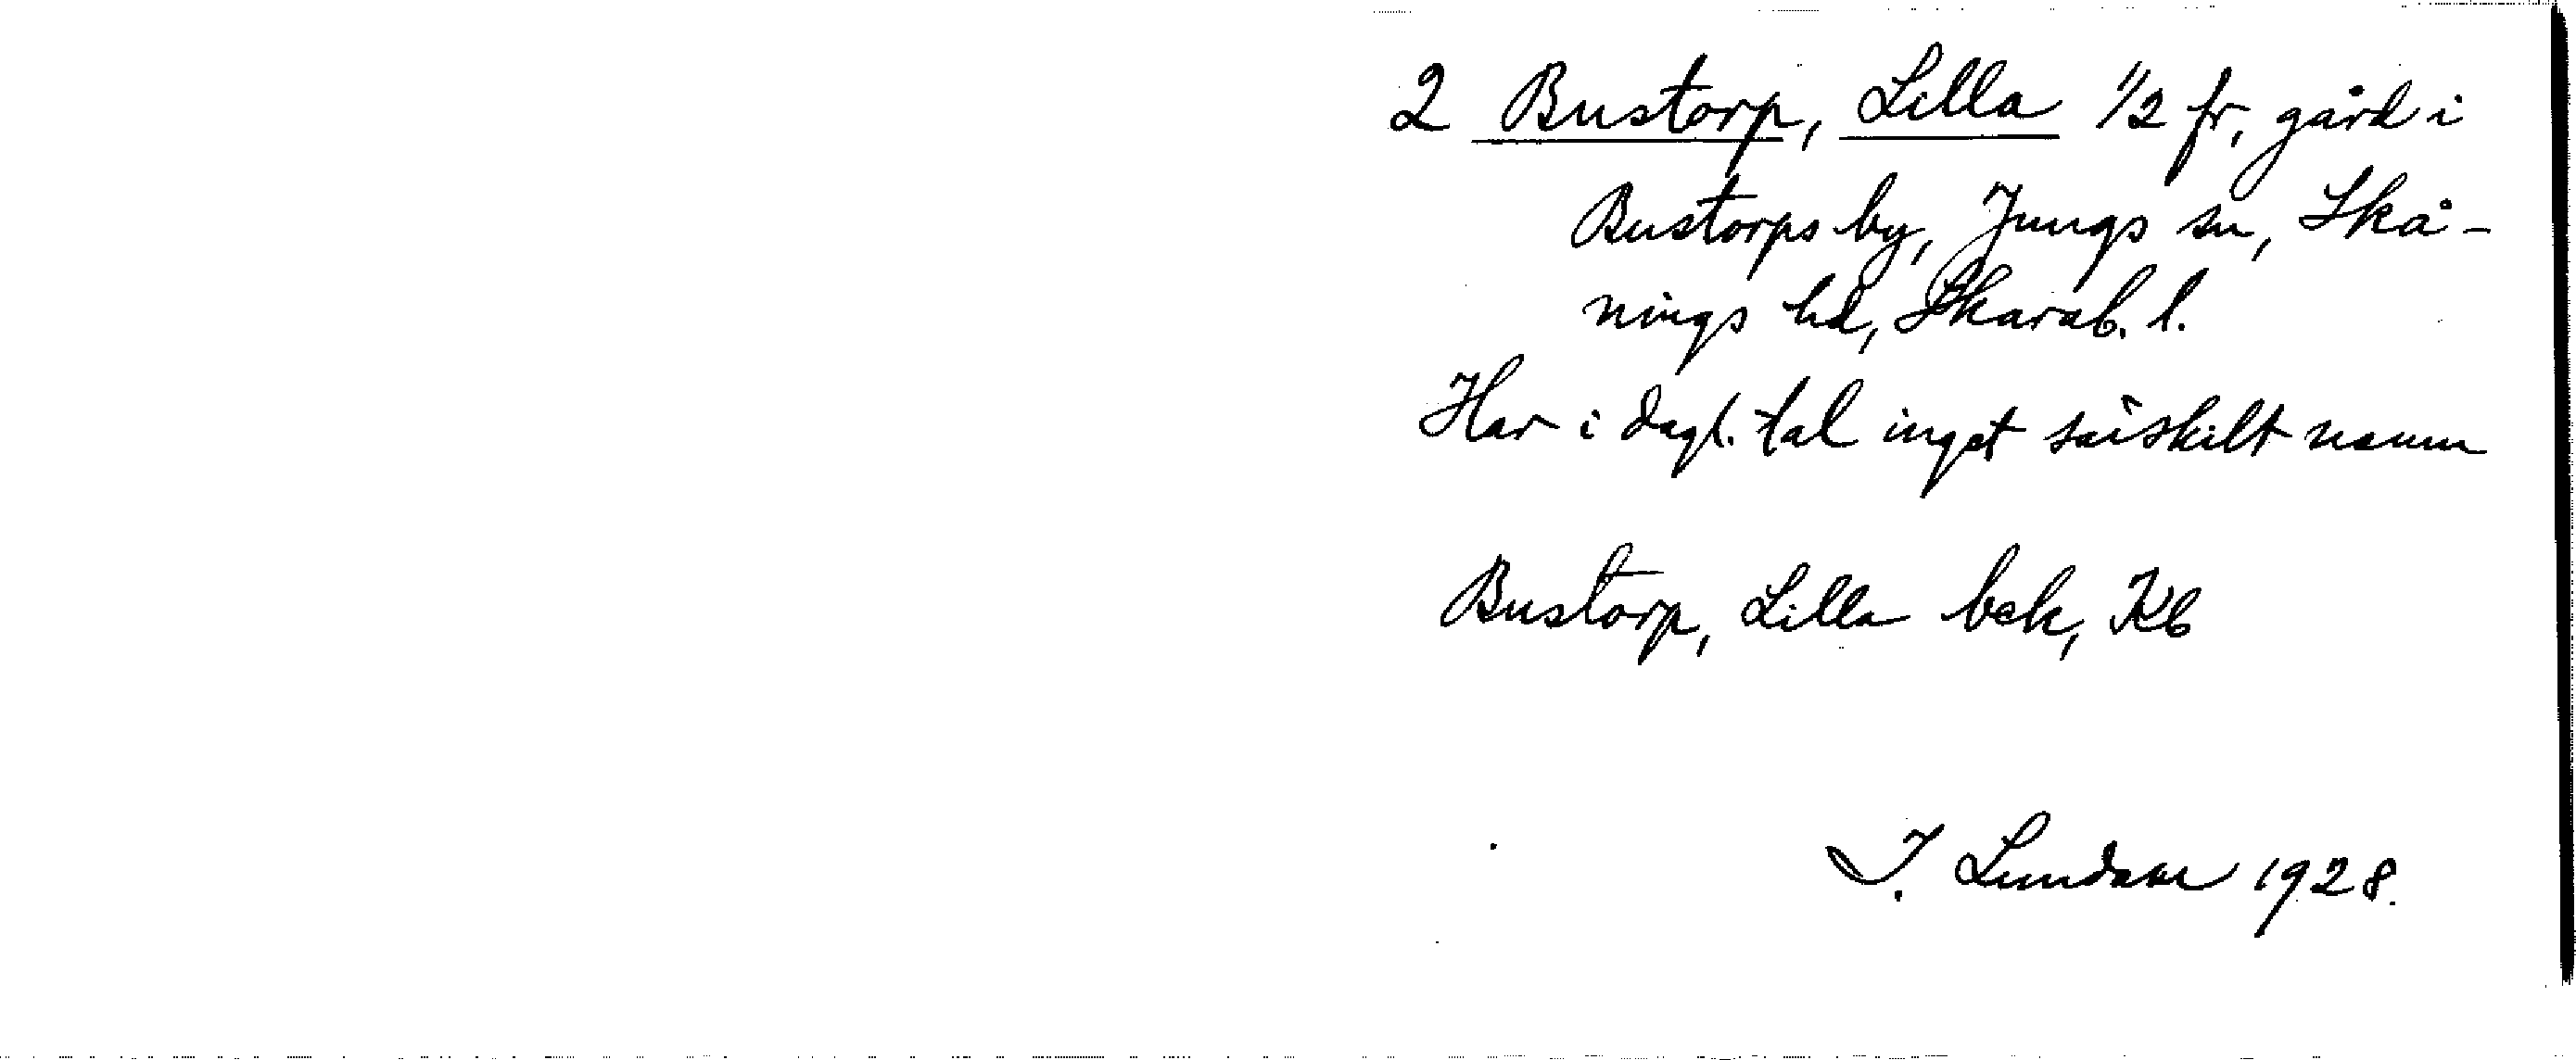 2 Bustorp, Lilla 1/2 fr, gård i
Bustorps by, Jungs sn, Skå-
nings hd, Skarab. l.
Har i dagl. tal inget särskilt namn
Bustorp, Lilla bek, Kb
I. Lundahl 1928.